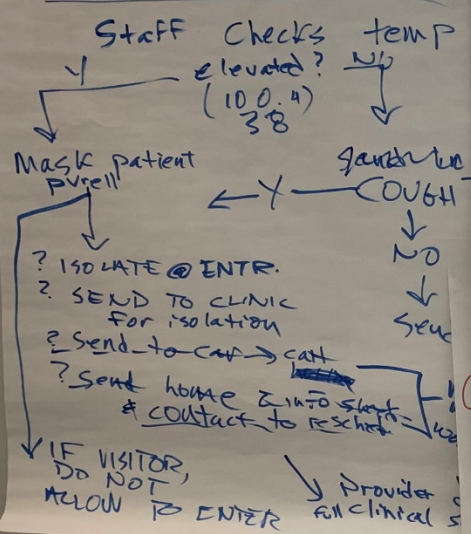 Staff Checks temp
Y elevated? NO
(100.4)
38
Mask patient
purell
Y COUGH
NO
? ISOLATE @ ENTR.
? SEND TO CLINIC
for isolation
? Send to car → call
? Send home c info sheet
& contact to resched
IF VISITOR,
DO NOT
ALLOW TO ENTER
Provider
full clinical